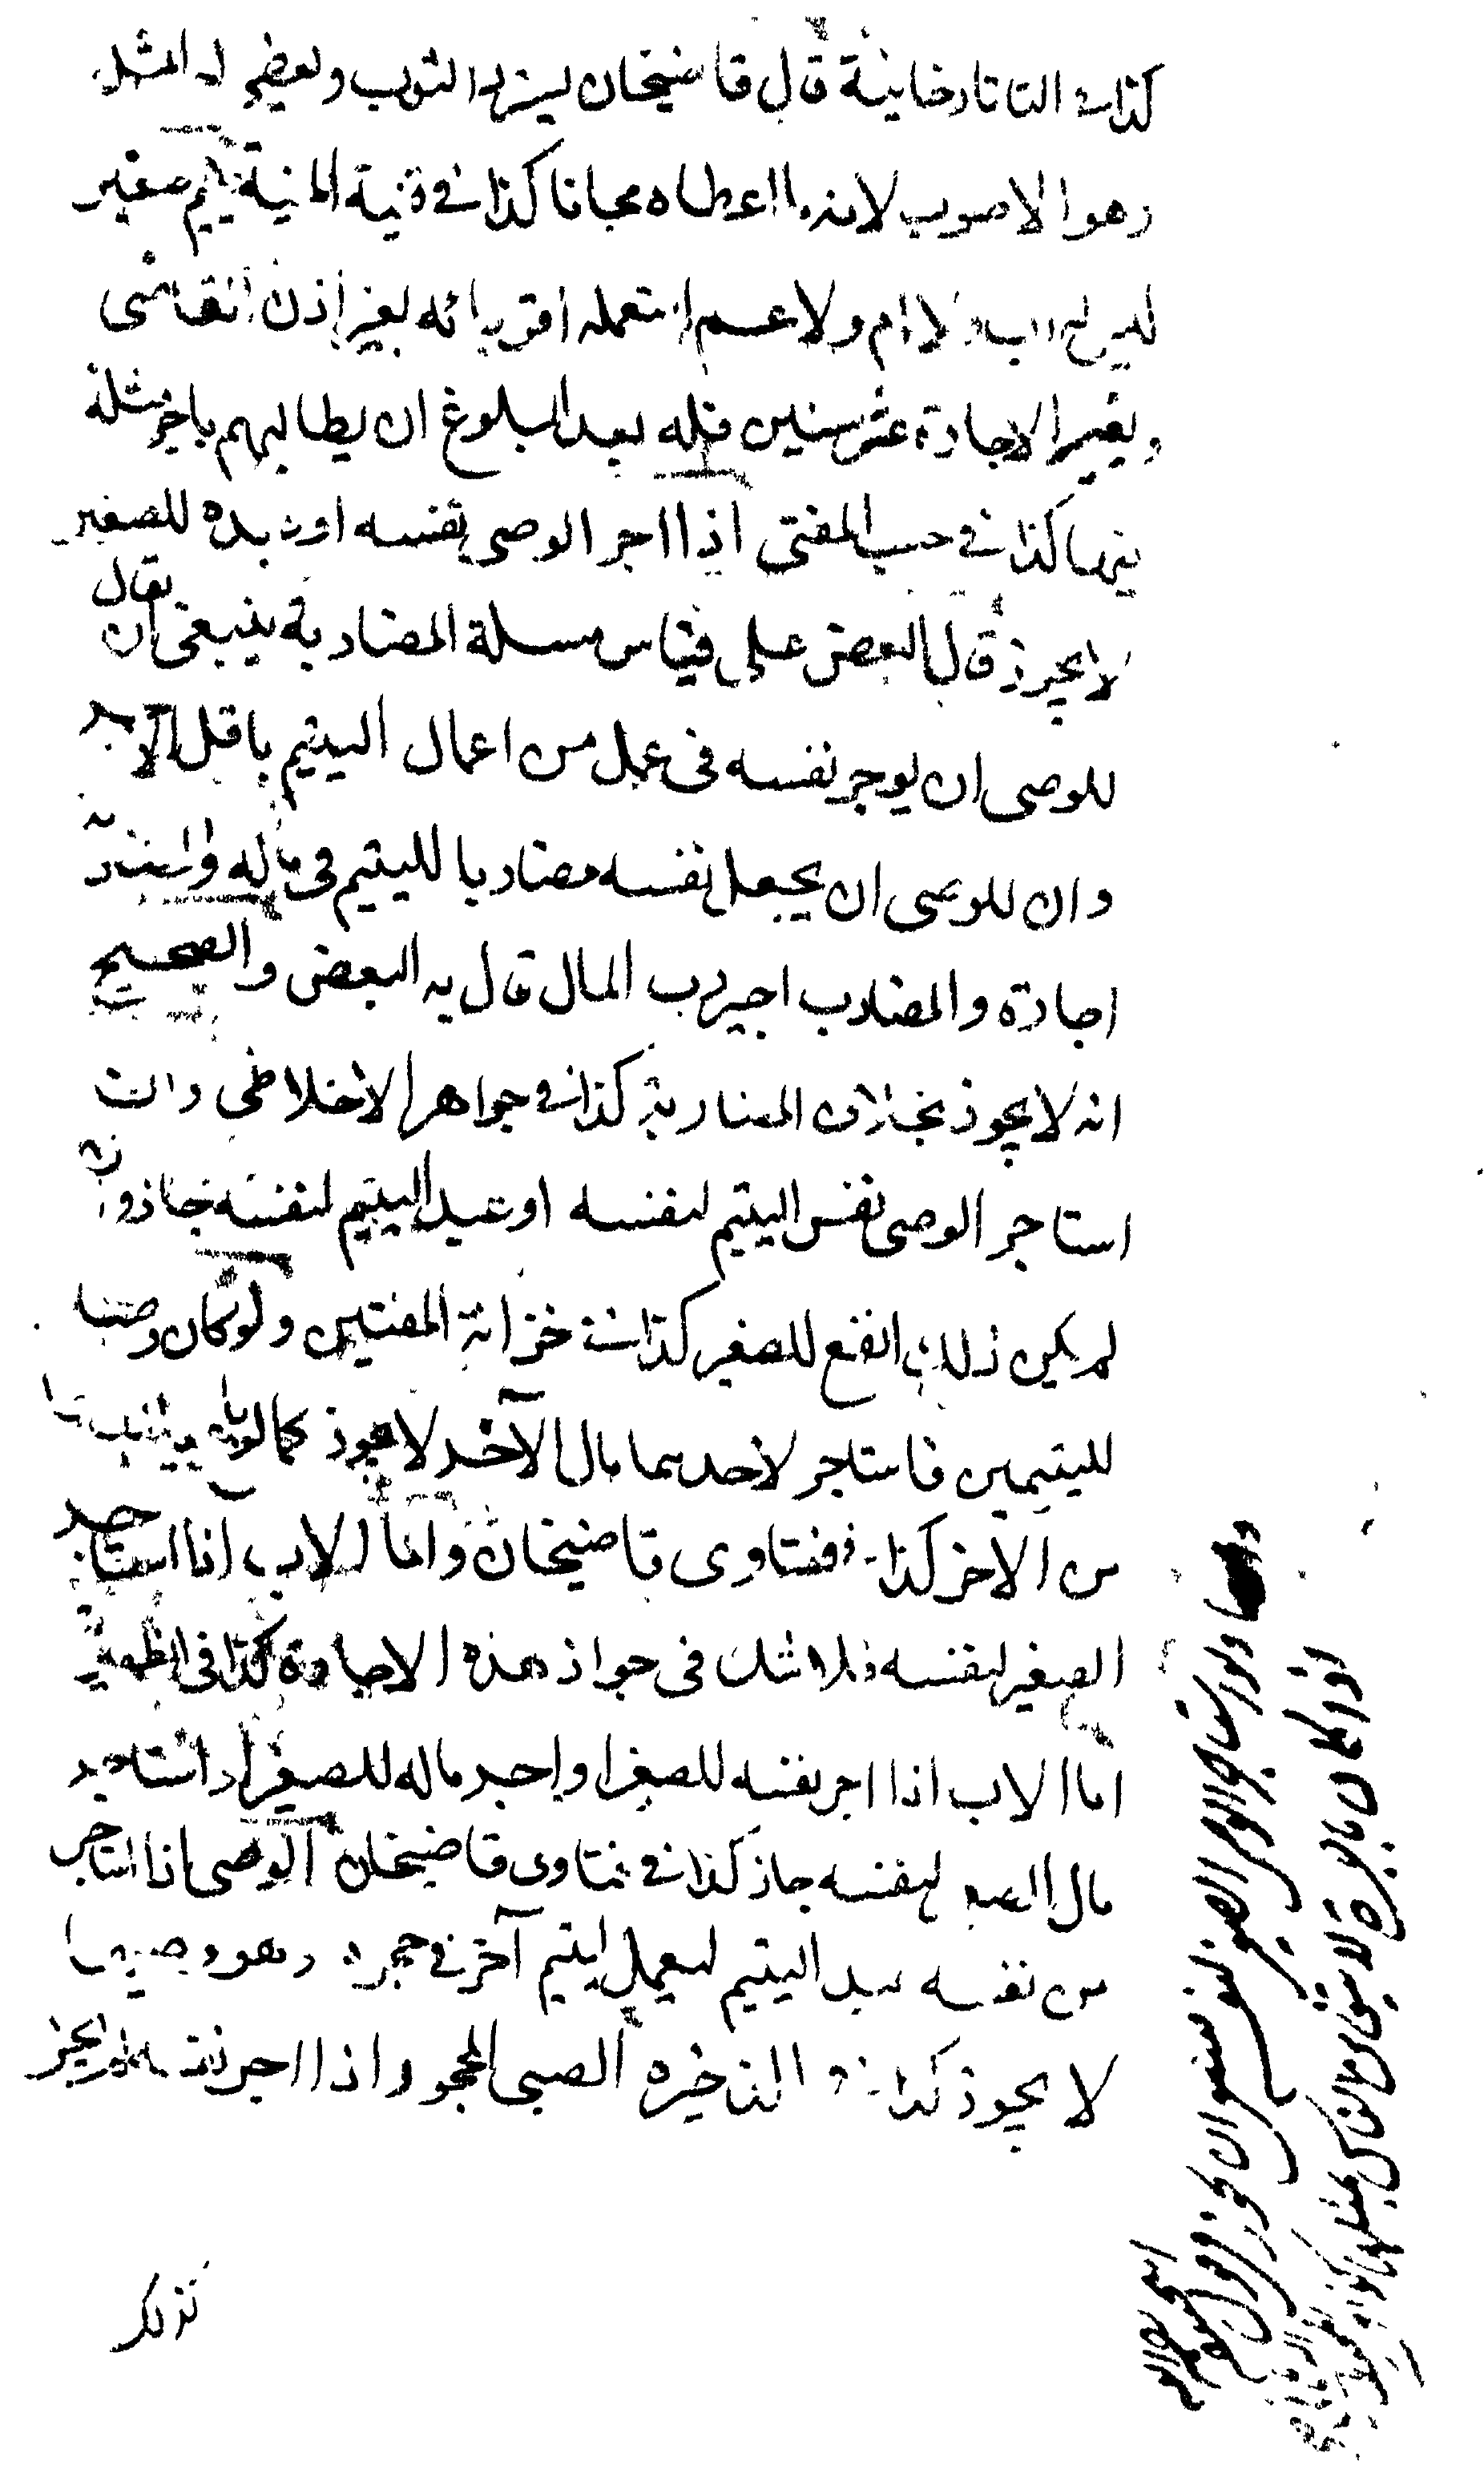 كذا في التاتارخانية قال قاضيخان يسترد الثوب ويعطي له المثل
وهو الاصوب لانه ما اعطاه مجانا كذا في قنية المنية يتيم صغير
ليس له اب ولا ام ولا عم استعمله اقرباؤه بغير اذن القاضي
وبغير الاجارة عشر سنين فله بعد البلوغ ان يطالبهم باجر مثله
فيها كذا في حسب المفتى اذا اجر الوصى نفسه او عبده للصغير
لا يجوز قال البعض على قياس مسئلة المضاربة ينبغي ان يقال
للوصى ان يوجر نفسه في عمل من اعمال اليتيم باقل الاجر
وان للوصى ان يجعل نفسه مضاربا لليتيم في ماله والمضاربة
اجارة والمضارب اجير رب المال قال به البعض والصحيح
انه لا يجوز بخلاف المضاربة كذا في جواهر الاخلاطى وان
استاجر الوصى نفس اليتيم لنفسه او عبد اليتيم لنفسه جاز وان
لم يكن ذلك انفع للصغير كذا في خزانة المفتيين ولو كان وصيا
لليتيمين فاستاجر لاحدهما مال الآخر لا يجوز كما لو باع
من الاخر كذا في فتاوى قاضيخان واما الاب اذا استاجر
الصغير لنفسه فلا شك في جواز هذه الاجارة كذا في الظهيرية
اما الاب اذا اجر نفسه للصغير او اجر ماله للصغير او استاجر
مال الصغير لنفسه جاز كذا في فتاوى قاضيخان الوصى اذا استاجر
من نفسه عبد اليتيم ليعمل ليتيم آخر في حجره وهو وصيهما
لا يجوز كذا في الذخيره الصبى المحجور اذا اجر نفسه لم يجز
ولو استاجر الوصى الصغير لنفسه
اذا كان باجرة لا يتغابن الناس